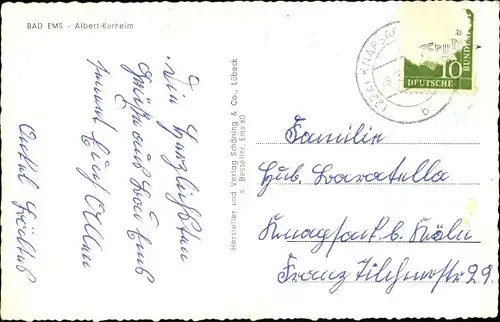 BAD EMS - Albert-Kurheim
Die herzlichsten
Grüße aus Bad Ems
sendet Euch Allen
Onkel
Hersteller und Verlag Schöning & Co., Lübeck
s Bestellnr. Ems 60
10
DEUTSCHE
BUNDESP
Familie
Hub. Baratella
Knapsack b. Köln
29.